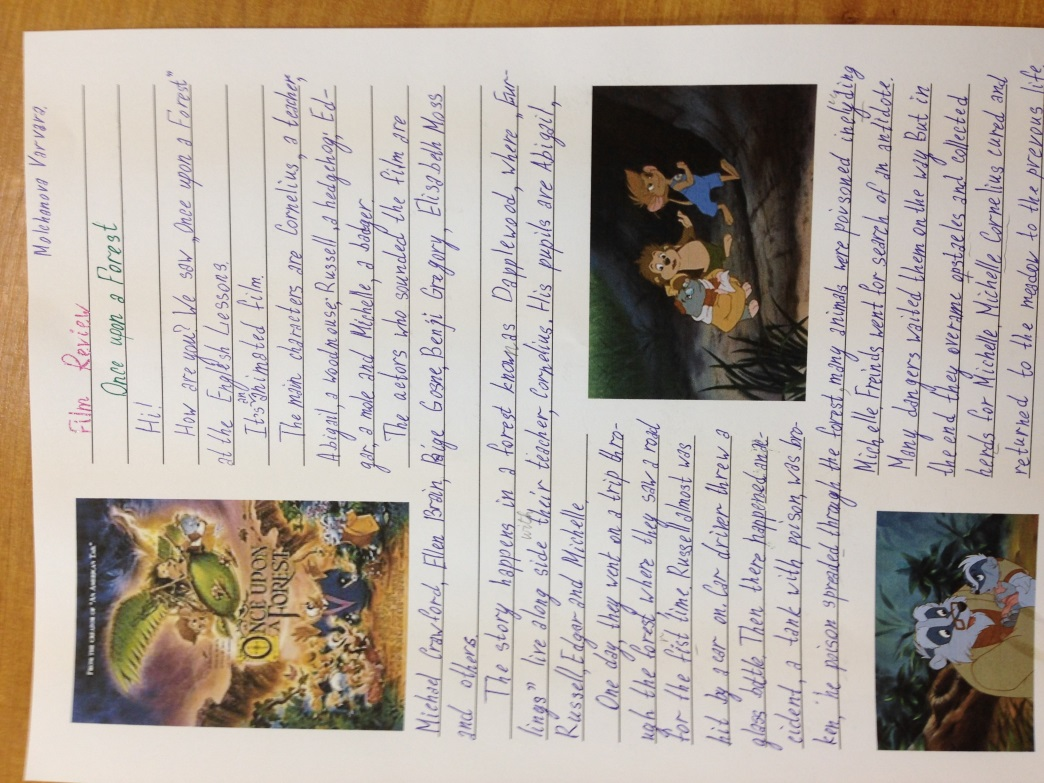 Molchanova Varvara.
Film Review
Once upon a Forest
Hi!
How are you? We saw „Once upon a Forest"
at the English Lessons.
an
It's animated film.
The main characters are Cornelius, a teacher,
Abigail, a woodmouse; Russell, a hedgehog; Ed-
gar, a mole and Michelle, a badger.
The actors who sounded the film are
FROM THE CREATOR OF "AN AMERICAN TAIL"
ONCE UPON
A FOREST
Michael Crawford, Ellen Brain, Paige Gosne, Benji Gregory, Elisabeth Moss
and others.
The story happens in a forest known as Dapplewood, where „Fur-
with
lings" live along side their teacher, Cornelius. His pupils are Abigail,
Russell, Edgar and Michelle.
One day, they went on a trip thro-
ugh the forest where they saw a road
for the fist time. Russell almost was
hit by a car on. Car driver threw a
glass bottle. Then there happened an ac-
cident, a tank with poison, was bro-
ken, the poison spreaded through the forest, many animals were poisoned inclyding
Michelle. Freinds went for search of an antidote.
Many dangers waited them on the way but in
the end they overame opstacles and collected
herds for Michelle. Michelle Cornelius cured and
returned to the meadow to the prevous life.